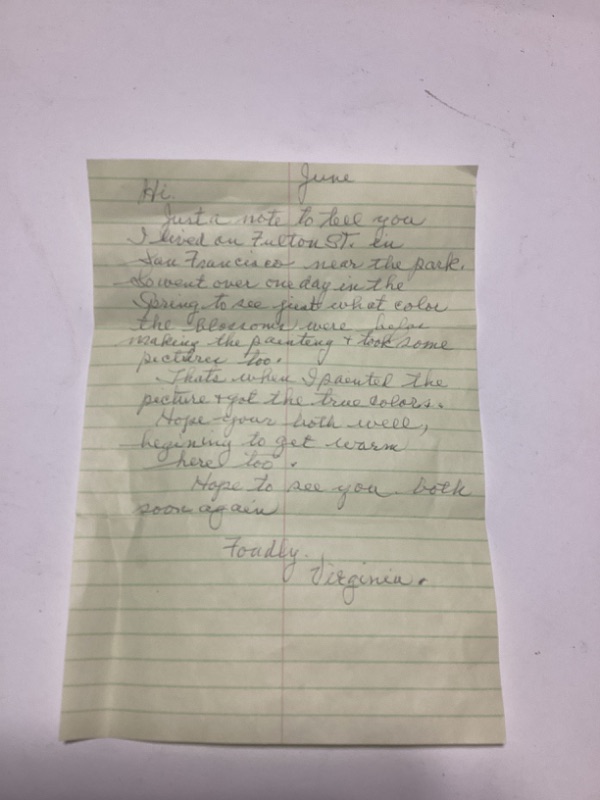 June
Hi.
Just a note to tell you
I lived on Fulton St. in
San Francisco near the park.
So went over one day in the
Spring to see just what color
the blossoms were before
making the painting + took some
pictures too.
Thats when I painted the
picture + got the true colors.
Hope your both well,
begining to get warm
here too.
Hope to see you both
soon again
Fondly.
Virginia.